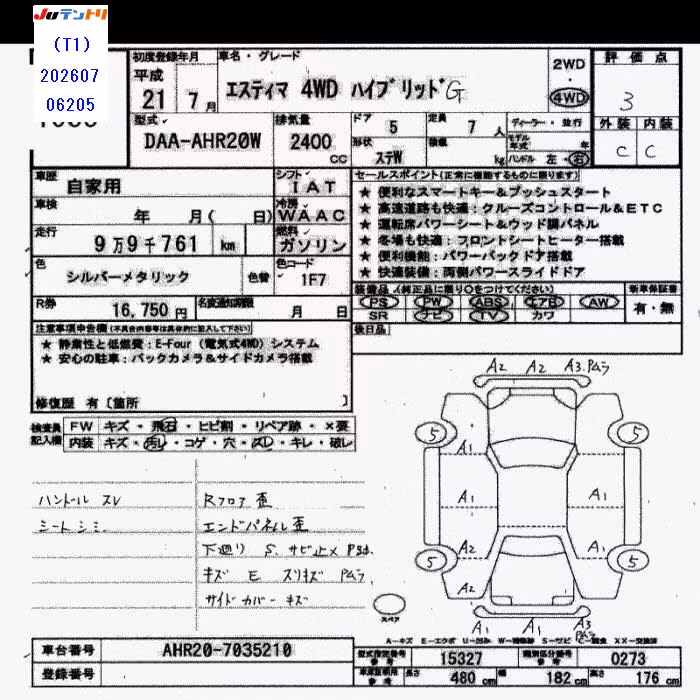 JUテントリ
(T1)
202607
06205
初度登録年月
平成
21 7月
車名・グレード
エスティマ 4WD ハイブリッドG
2WD
・
4WD
評価点
3
外装 内装
C C
型式
DAA-AHR20W
排気量
2400
CC
ドア 5
定員 7人
形状 ステW
積載 kg
ディーラー・並行
モデル年式 年
ハンドル 左・右
車歴 自家用
シフト IAT
車検 年 月(日)
冷房 WAAC
走行 9万9千761 km
燃料 ガソリン
色 シルバーメタリック
色替
色コード 1F7
R券 16,750円
名変通知期限 月 日
セールスポイント(正常に機能するものに限ります)
★ 便利なスマートキー&プッシュスタート
★ 高速道路も快適:クルーズコントロール&ETC
★ 運転席パワーシート&ウッド調パネル
★ 冬場も快適:フロントシートヒーター搭載
★ 便利機能:パワーバックドア搭載
★ 快適装備:両側パワースライドドア
装備品(純正品に限り〇をつけてください)
PS PW ABS エアB AW
SR ナビ TV カワ
新車保証書
有・無
後日品
注意事項申告欄(不具合内容等は具体的に記入して下さい)
★ 静粛性と低燃費:E-Four(電気式4WD)システム
★ 安心の駐車:バックカメラ&サイドカメラ搭載
修復歴 有〔箇所 〕
検査員記入欄
FW キズ・飛石・ヒビ割・リペア跡・×要
内装 キズ・汚レ・コゲ・穴・スレ・キレ・破レ
ハンドル スレ
シート シミ
Rフロア 歪
エンドパネル歪
下廻り S. サビ止メ
キズ E スリキズ PAラ
サイドカバー キズ
A2 A2 A3.PAラ
5 5
A1
A1 A1
A1
A2 A2
5 5
A2 A1
A1 A1 A3
PAラ
スペア
A-キズ E-エクボ U-凹み W-補修跡 S-サビ C-腐食 XX-交換済
車台番号 AHR20-7035210
登録番号
型式指定番号 参考 15327
類別区分番号 参考 0273
車庫証明用 参考 長さ 480 cm 幅 182 cm 高さ 176 cm